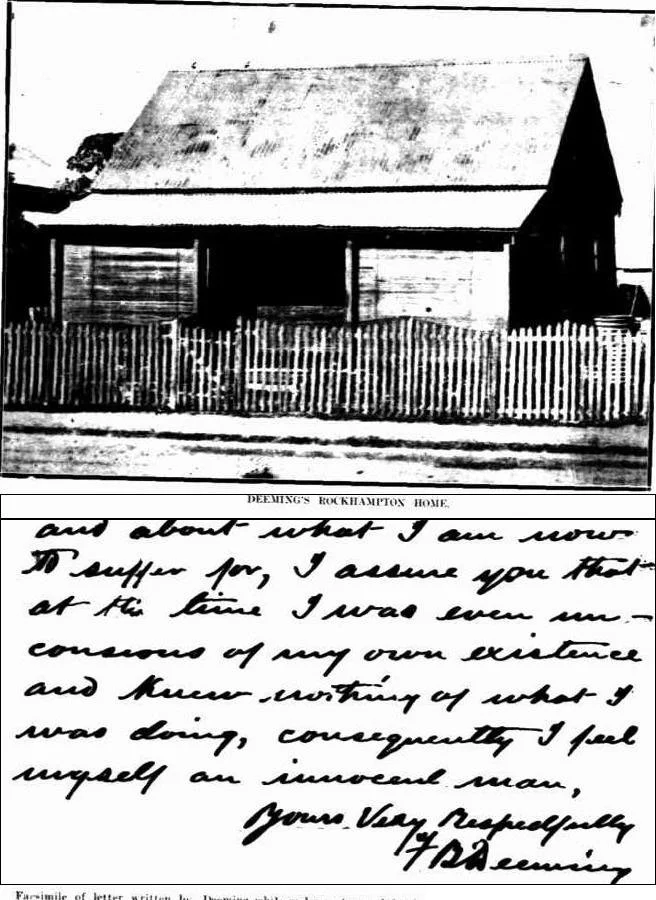 DEEMING'S ROCKHAMPTON HOME.
and about what I am now
to suffer for, I assure you that
at the time I was even un-
consious of my own existence
and knew nothing of what I
was doing, consequently I feel
myself an innocent man,
Yours Very Respectfully
F B Deeming
Facsimile of letter written by Deeming while